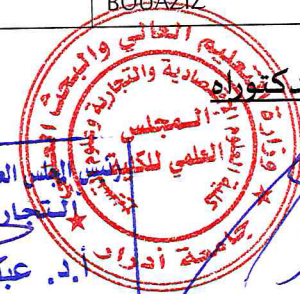 BOUAZIZ
دكتوراه
وزارة التعليم العالي والبحث العلمي
كلية العلوم الاقتصادية والتجارية وعلوم التسيير
المجلس
العلمي للكلية
جامعة أدرار
رئيس المجلس
أ.د.